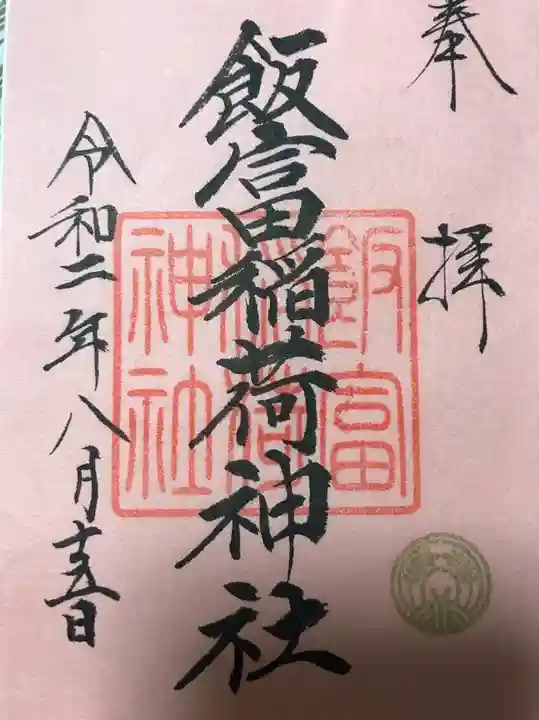 奉拝
飯富稲荷神社
飯富
稲荷
神社
令和二年八月十五日